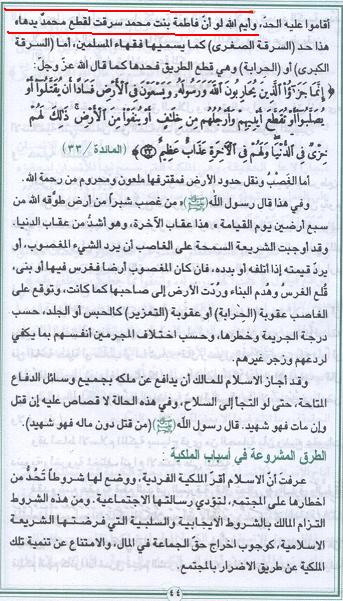 أقاموا عليه الحدّ، وأيم الله لو أنّ فاطمة بنت محمد سرقت لقطع محمدٌ يدها،
هذا حد (السرقة الصغرى) كما يسميها فقهاء المسلمين، أما (السرقة
الكبرى) أو (الحرابة) وهي قطع الطريق فحدها كما قال الله عزّ وجلّ:
﴿إِنَّمَا جَزَٰٓؤُا۟ ٱلَّذِينَ يُحَارِبُونَ ٱللَّهَ وَرَسُولَهُۥ وَيَسْعَوْنَ فِى ٱلْأَرْضِ فَسَادًا أَن يُقَتَّلُوٓا۟ أَوْ
يُصَلَّبُوٓا۟ أَوْ تُقَطَّعَ أَيْدِيهِمْ وَأَرْجُلُهُم مِّنْ خِلَٰفٍ أَوْ يُنفَوْا۟ مِنَ ٱلْأَرْضِ ۚ ذَٰلِكَ لَهُمْ
خِزْىٌ فِى ٱلدُّنْيَا ۖ وَلَهُمْ فِى ٱلْءَاخِرَةِ عَذَابٌ عَظِيمٌ ﴿٣٣﴾﴾ (المائدة/٣٣)
أما الغَصْبُ ونقل حدود الأرض فمقترفها ملعون ومحروم من رحمة الله.
وفي هذا قال رسول الله (ﷺ) «من غصب شبراً من أرض طوّقه الله من
سبع أرضين يوم القيامة» هذا عقاب الآخرة، وهو أشدُّ من عقاب الدنيا.
وقد أوجبت الشريعة السمحة على الغاصب أن يرد الشيء المغصوب، أو
يردّ قيمته إذا أتلفه أو بدده، فان كان المغصوب أرضا فغرس فيها أو بنى،
قُلع الغرسُ وهُدم البناء ورُدّت الأرض إلى صاحبها كما كانت، وتوقع على
الغاصب عقوبة (الحرابة) أو عقوبة (التعزير) كالحبس أو الجلد، حسب
درجة الجريمة وخطرها، وحسب اختلاف المجرمين أنفسهم بما يكفي
لردعهم وزجر غيرهم.
وقد أجاز الاسلام للمالك أن يدافع عن ملكه بجميع وسائل الدفاع
المتاحة، حتى لو التجأ إلى السلاح، وفي هذه الحالة لا قصاص عليه إن قتل
وإن مات فهو شهيد. قال رسول الله (ﷺ) (من قتل دون ماله فهو شهيد).
الطرق المشروعة في أسباب الملكية:
عرفتَ أنّ الاسلام أقرّ الملكية الفردية، ووضع لها شروطاً تَحُدُّ من
اخطارها على المجتمع، لتؤدي رسالتها الاجتماعية. ومن هذه الشروط
التزام المالك بالشروط الايجابية والسلبية التي فرضتها الشريعة
الاسلامية، كوجوب اخراج حقّ الجماعة في المال، والامتناع عن تنمية تلك
الملكية عن طريق الاضرار بالمجتمع.
٤٤